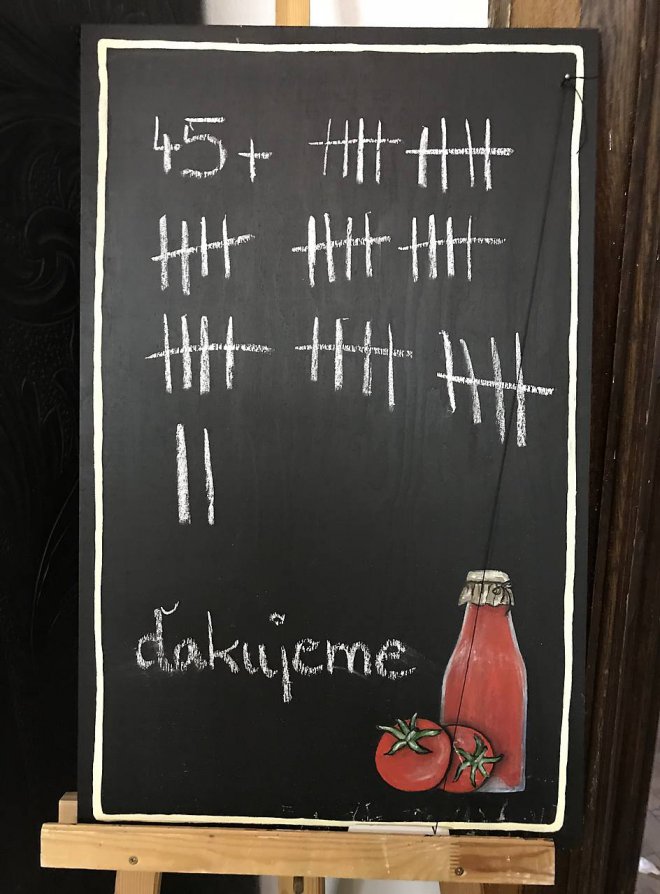 45+
ďakujeme